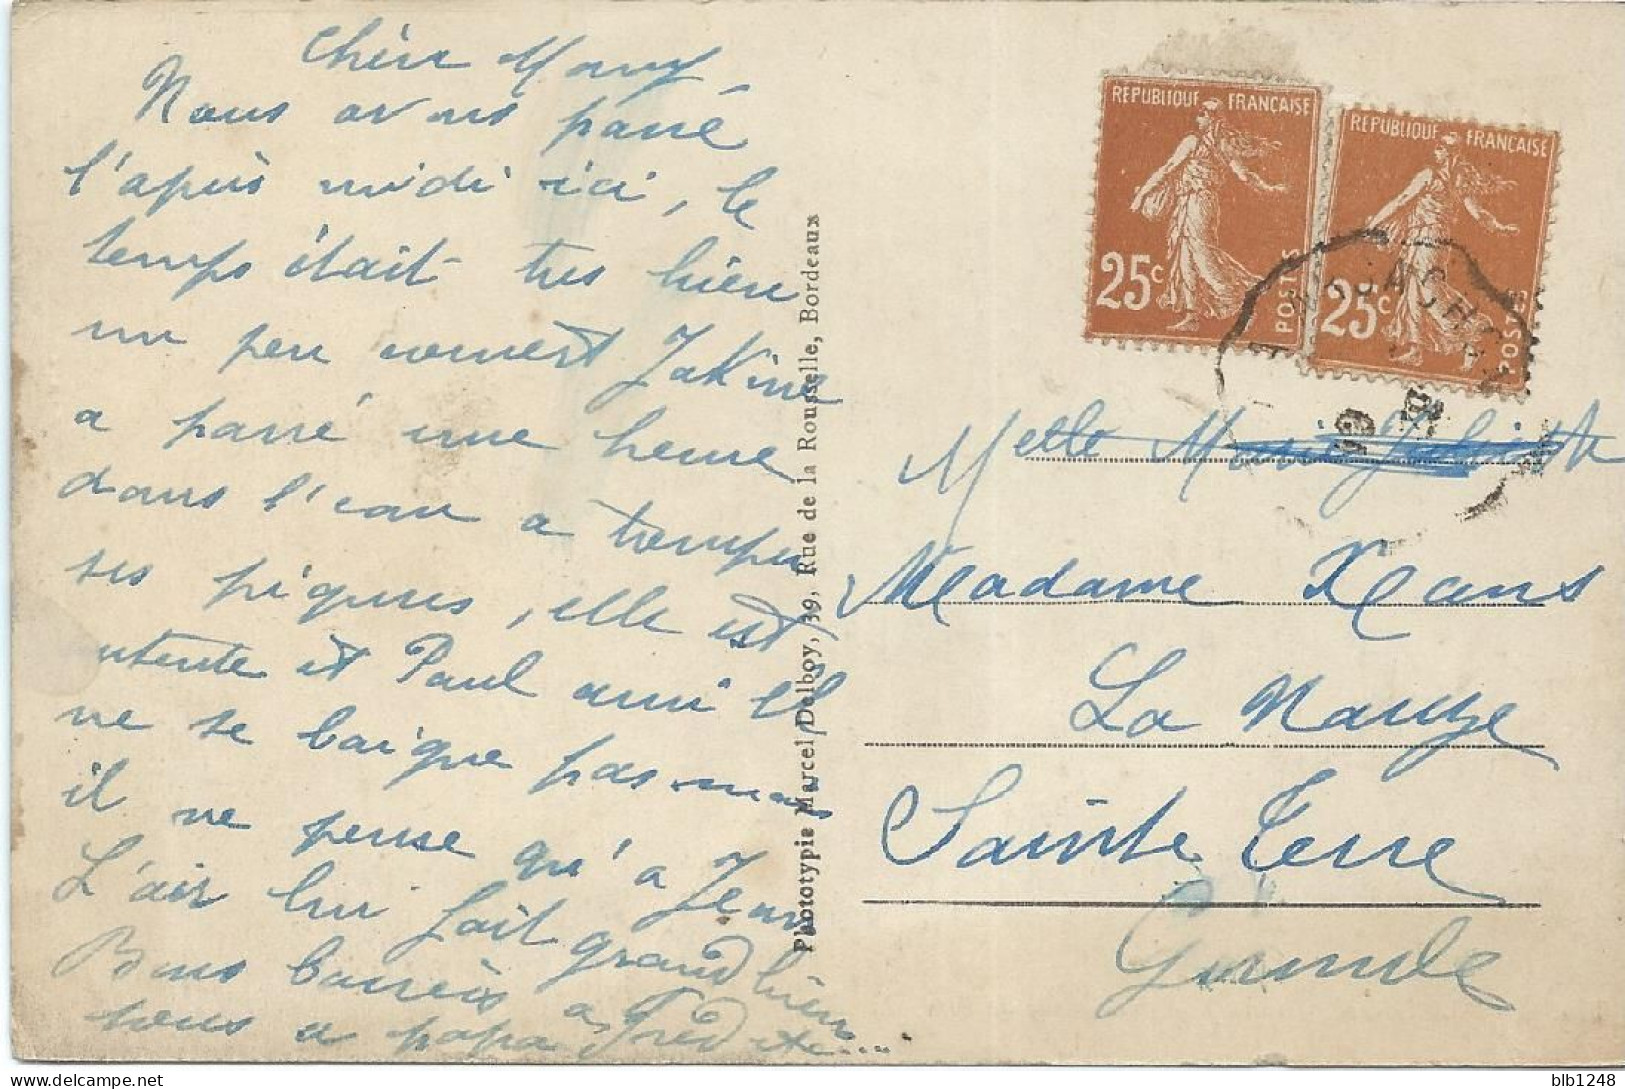 Chère Mony,
Nous avons passé
l'après midi ici, le
temps était tres bien
un peu couvert
a passé une heure
dans l'eau a trempé
ses piqures, elle est
et Paul aussi il
ne se baigne pas mais
il ne pense qu'à Jean
L'air lui fait grand bien
Bons baisers a
tous a papa Fred etc....
Phototypie Marcel Delboy, 39, Rue de la Rousselle, Bordeaux
REPUBLIQUE FRANÇAISE
25c POSTES
REPUBLIQUE FRANÇAISE
25c POSTES
ARCACHON
Melle Marie
Madame
La Nauze
Sainte Terre
Gironde
blb1248